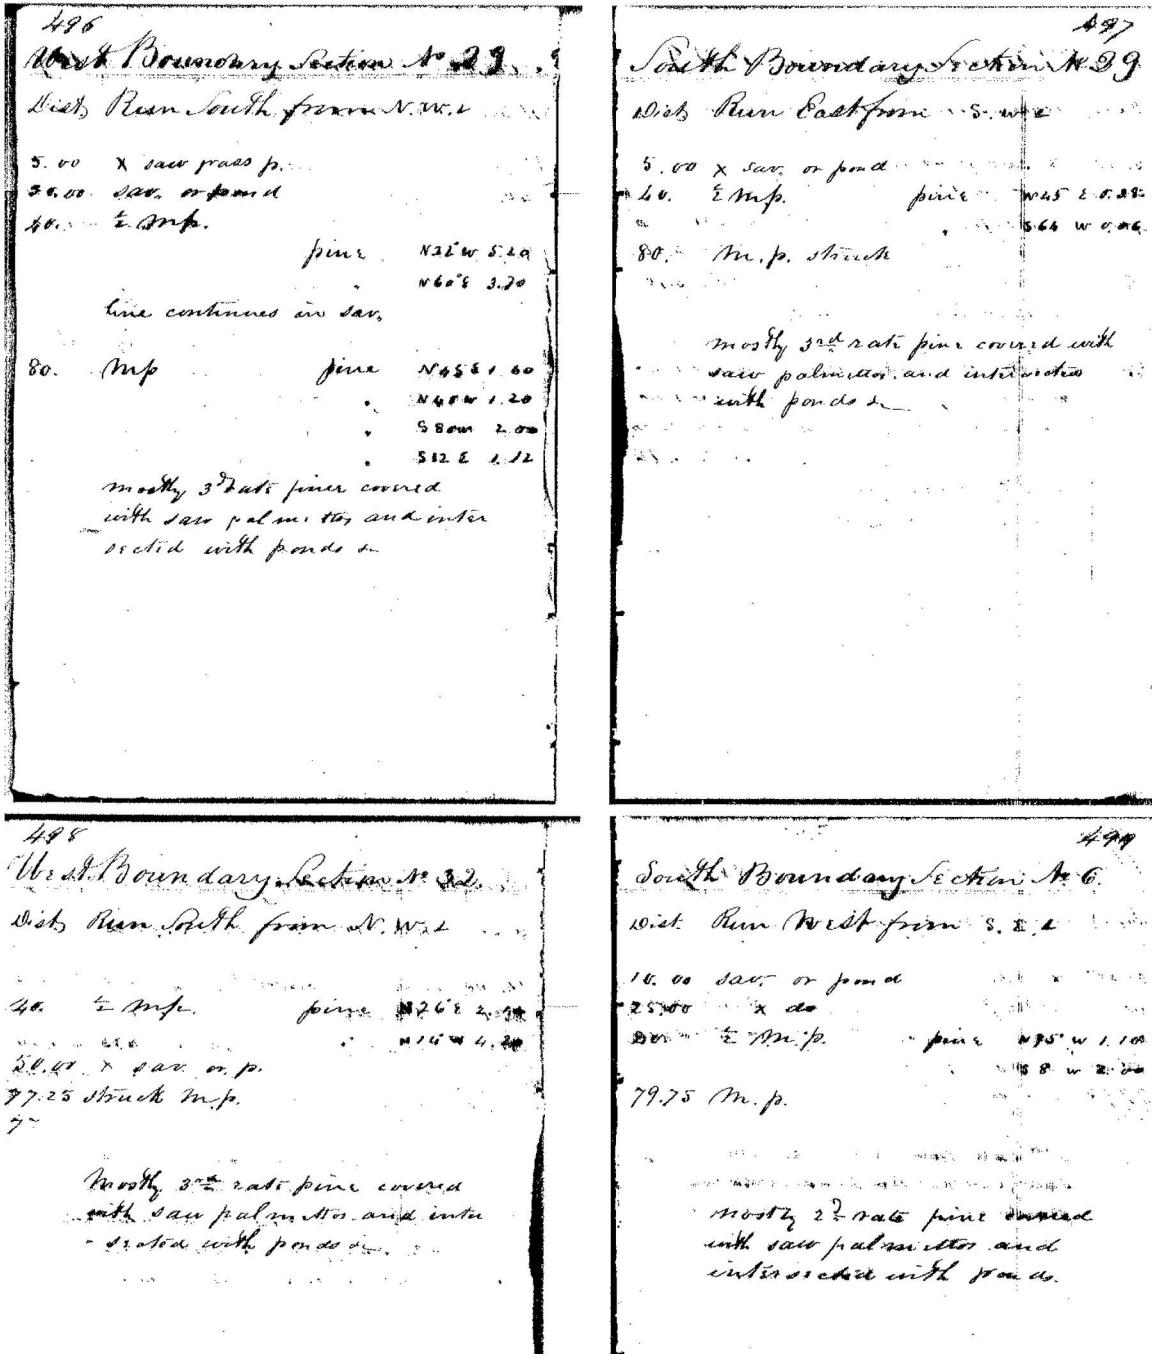 496
West Boundary Section No 29
Dist Run South from N.W.
5.00 X saw grass p.
30.00 sav. or pond
40. ½ m.p.
pine N32 W 5.20
" N60 E 3.70
line continues in sav.
80. m.p pine N45 E 1.60
" N40 W 1.20
" S80 W 2.00
" S12 E 1.12
mostly 3d rate pine covered
with saw palmettos and inter
sected with ponds &
497
South Boundary Section No 29
Dist Run East from S.W.
5.00 X sav. or pond
40. ½ m.p. pine N45 E 0.28
" S64 W
80. m.p. struck
mostly 3rd rate pine covered with
saw palmettos and intersected
with ponds &
498
West Boundary Section No 32
Dist Run South from N.W.
40. ½ m.p. pine N26 E
" N14 W 4.20
50.00 X sav. or p.
77.25 struck m.p.
mostly 3rd rate pine covered
with saw palmettos and inter
sected with ponds &
499
South Boundary Section No 6.
Dist. Run West from S.E.
10.00 sav. or pond
25.00 X do
½ m.p. pine W 1.10
S 8 W 2.00
79.75 m.p.
mostly 2d rate pine covered
with saw palmettos and
intersected with ponds.